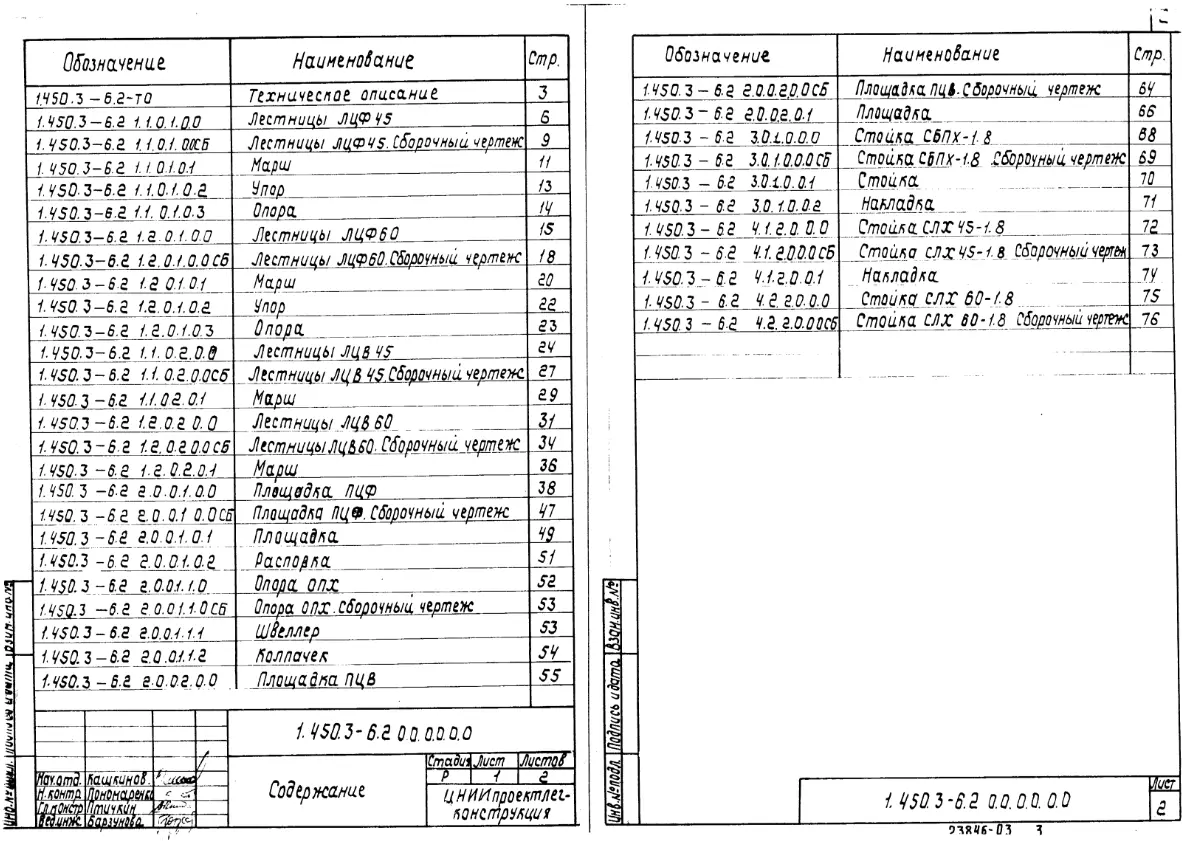 Обозначение Наименование Стр.
1.450.3-6.2-ТО Техническое описание 3
1.450.3-6.2 1.1.0.1.0.0 Лестницы ЛЦФ45 6
1.450.3-6.2 1.1.0.1.00СБ Лестницы ЛЦФ45. Сборочный чертеж 9
1.450.3-6.2 1.1.0.1.0.1 Марш 11
1.450.3-6.2 1.1.0.1.0.2 Упор 13
1.450.3-6.2 1.1.0.1.0.3 Опора 14
1.450.3-6.2 1.2.0.1.0.0 Лестницы ЛЦФ60 15
1.450.3-6.2 1.2.0.1.0.0СБ Лестницы ЛЦФ60. Сборочный чертеж 18
1.450.3-6.2 1.2.0.1.0.1 Марш 20
1.450.3-6.2 1.2.0.1.0.2 Упор 22
1.450.3-6.2 1.2.0.1.0.3 Опора 23
1.450.3-6.2 1.1.0.2.0.0 Лестницы ЛЦВ45 24
1.450.3-6.2 1.1.0.2.0.0СБ Лестницы ЛЦВ45. Сборочный чертеж 27
1.450.3-6.2 1.1.0.2.0.1 Марш 29
1.450.3-6.2 1.2.0.2.0.0 Лестницы ЛЦВ60 31
1.450.3-6.2 1.2.0.2.0.0СБ Лестницы ЛЦВ60. Сборочный чертеж 34
1.450.3-6.2 1.2.0.2.0.1 Марш 36
1.450.3-6.2 2.0.0.1.0.0 Площадка ПЦФ 38
1.450.3-6.2 2.0.0.1.0.0СБ Площадка ПЦФ. Сборочный чертеж 47
1.450.3-6.2 2.0.0.1.0.1 Площадка 49
1.450.3-6.2 2.0.0.1.0.2 Распорка 51
1.450.3-6.2 2.0.0.1.1.0 Опора ОПХ 52
1.450.3-6.2 2.0.0.1.1.0СБ Опора ОПХ. Сборочный чертеж 53
1.450.3-6.2 2.0.0.1.1.1 Швеллер 53
1.450.3-6.2 2.0.0.1.1.2 Колпачек 54
1.450.3-6.2 2.0.0.2.0.0 Площадка ПЦВ 55
1.450.3-6.2 0.0.0.0.0.0
Стадия Лист Листов
Р 1 2
Содержание
ЦНИИпроектлег-
конструкция
Нач.отд. Кашкинов
Н.контр. Пономаренко
Гл.констр Птичкин
Вед.инж. Барзунова
Обозначение Наименование Стр.
1.450.3-6.2 2.0.0.2.0.0СБ Площадка ПЦВ. Сборочный чертеж 64
1.450.3-6.2 2.0.0.2.0.1 Площадка 66
1.450.3-6.2 3.0.1.0.0.0 Стойка СБПХ-1.8 68
1.450.3-6.2 3.0.1.0.0.0СБ Стойка СБПХ-1.8 Сборочный чертеж 69
1.450.3-6.2 3.0.1.0.0.1 Стойка 70
1.450.3-6.2 3.0.1.0.0.2 Накладка 71
1.450.3-6.2 4.1.2.0.0.0 Стойка СЛХ45-1.8 72
1.450.3-6.2 4.1.2.0.0.0СБ Стойка СЛХ45-1.8 Сборочный чертеж 73
1.450.3-6.2 4.1.2.0.0.1 Накладка 74
1.450.3-6.2 4.2.2.0.0.0 Стойка СЛХ 60-1.8 75
1.450.3-6.2 4.2.2.0.0.0СБ Стойка СЛХ 60-1.8 Сборочный чертеж 76
Инв.№подл. Подпись и дата Взам.инв.№
1.450.3-6.2 0.0.0.0.0.0
Лист
2
23846-03 3